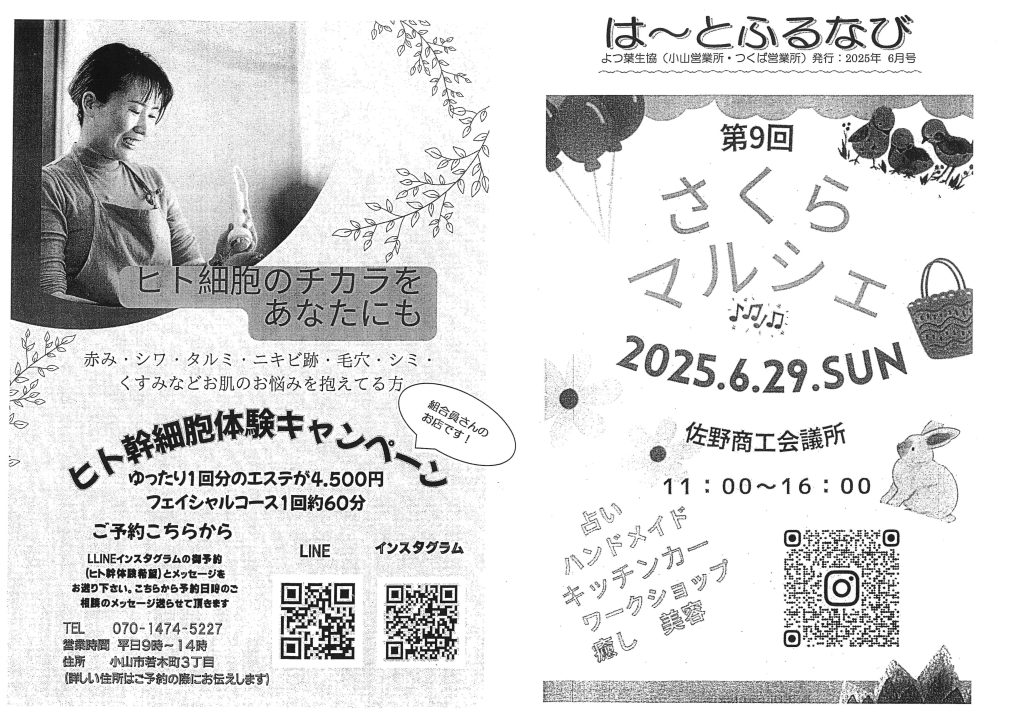 は～とふるなび
よつ葉生協（小山営業所・つくば営業所）発行：2025年 6月号
第9回
さくら
マルシェ
2025.6.29.SUN
佐野商工会議所
11：00～16：00
占い
ハンドメイド
キッチンカー
ワークショップ
癒し 美容
ヒト細胞のチカラを
あなたにも
赤み・シワ・タルミ・ニキビ跡・毛穴・シミ・
くすみなどお肌のお悩みを抱えてる方
組合員さんの
お店です！
ヒト幹細胞体験キャンペーン
ゆったり1回分のエステが4.500円
フェイシャルコース1回約60分
ご予約こちらから
LLINEインスタグラムの御予約
(ヒト幹体験希望)とメッセージを
お送り下さい。こちらから予約日時のご
相談のメッセージ送らせて頂きます
LINE
インスタグラム
TEL 070-1474-5227
営業時間 平日9時～14時
住所 小山市若木町3丁目
(詳しい住所はご予約の際にお伝えします)